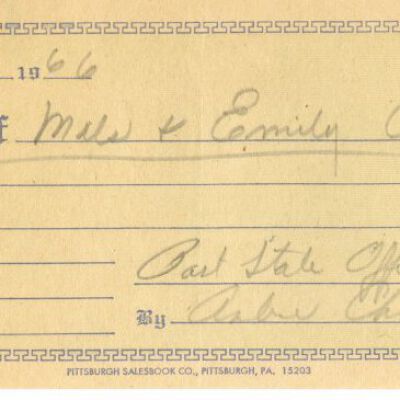 1966
Mals & Emily
Past State Off
By
PITTSBURGH SALESBOOK CO., PITTSBURGH, PA. 15203